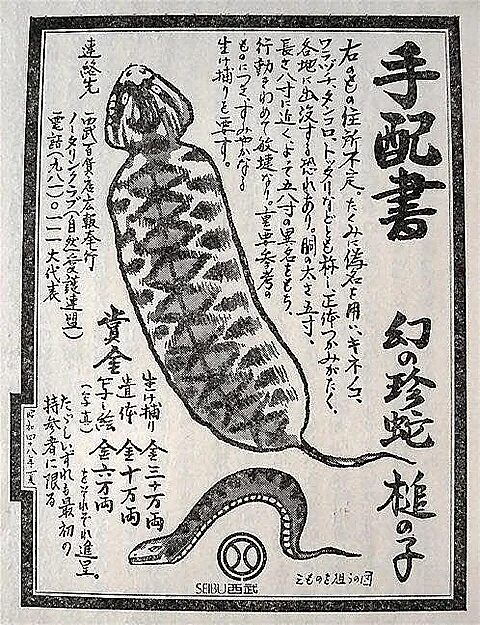 手配書
幻の珍蛇 槌の子
右のもの住所不定。たくみに偽名を用い、キネノコ、
ワニツチ、タンコロ、トックリなどとも称し正体つかみがたく、
各地に出没する恐れあり。胴の太さ五寸、
長さ八寸に近くよって五八寸の異名をもち、
行動きわめて敏速なり。重要参考の
ものにつきすみやかなる
生け捕りを要す。
連絡先
西武百貨店広報奉行
ノータリンクラブ(自然愛護連盟)
電話(九八一)〇一一一大代表
賞金
生け捕り 金三十万両
遺体 金十万両
写し絵 金六万両
(写真)
をそれぞれ進呈。
ただしいずれも最初の
持参者に限る
昭和四十八年一夏
SEIBU西武
えものを狙うの図